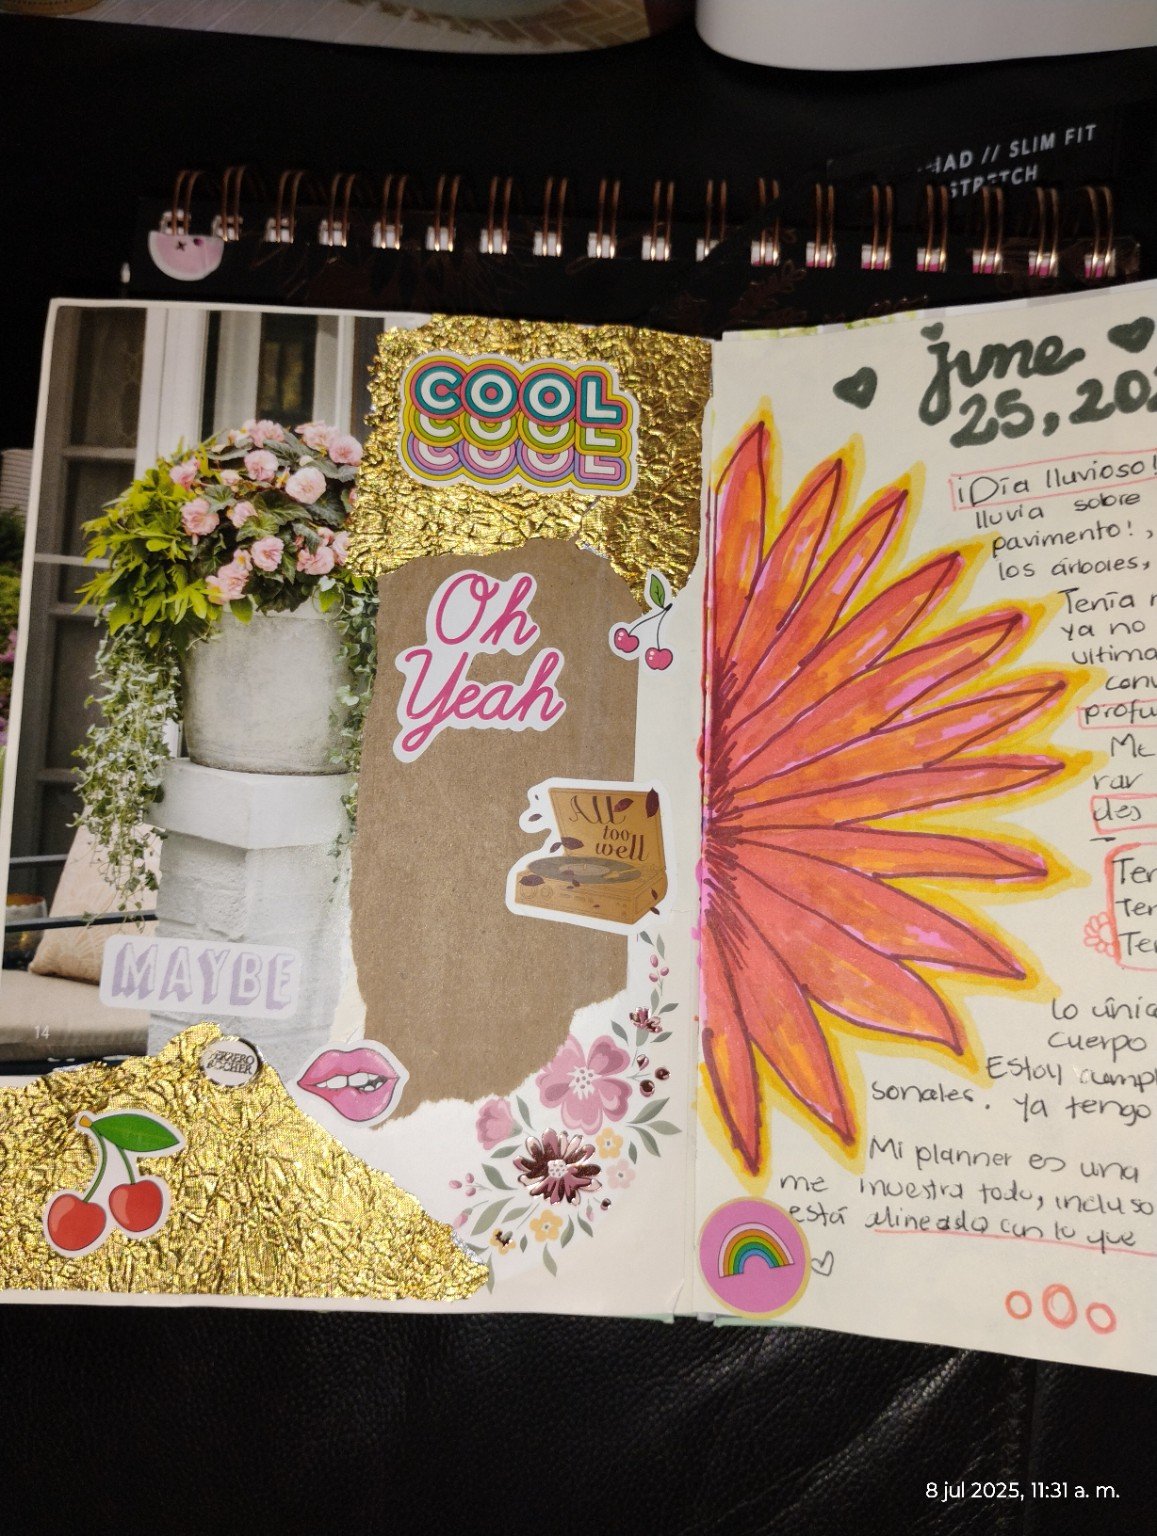 SLIM FIT
STRETCH
COOL
COOL
COOL
Oh
Yeah
All
too
well
MAYBE
14
FERRERO
ROCHER
june
25, 202
¡Día lluvioso!
lluvia sobre
pavimento!,
los árboles,
Tenía
ya no
ultima
conv
profu
Me
rar
des
Ten
Ten
Ten
Lo únic
cuerpo
Estoy cumpl
sonales. Ya tengo
Mi planner es una
me muestra todo, incluso
está alineado con lo que
8 jul 2025, 11:31 a. m.